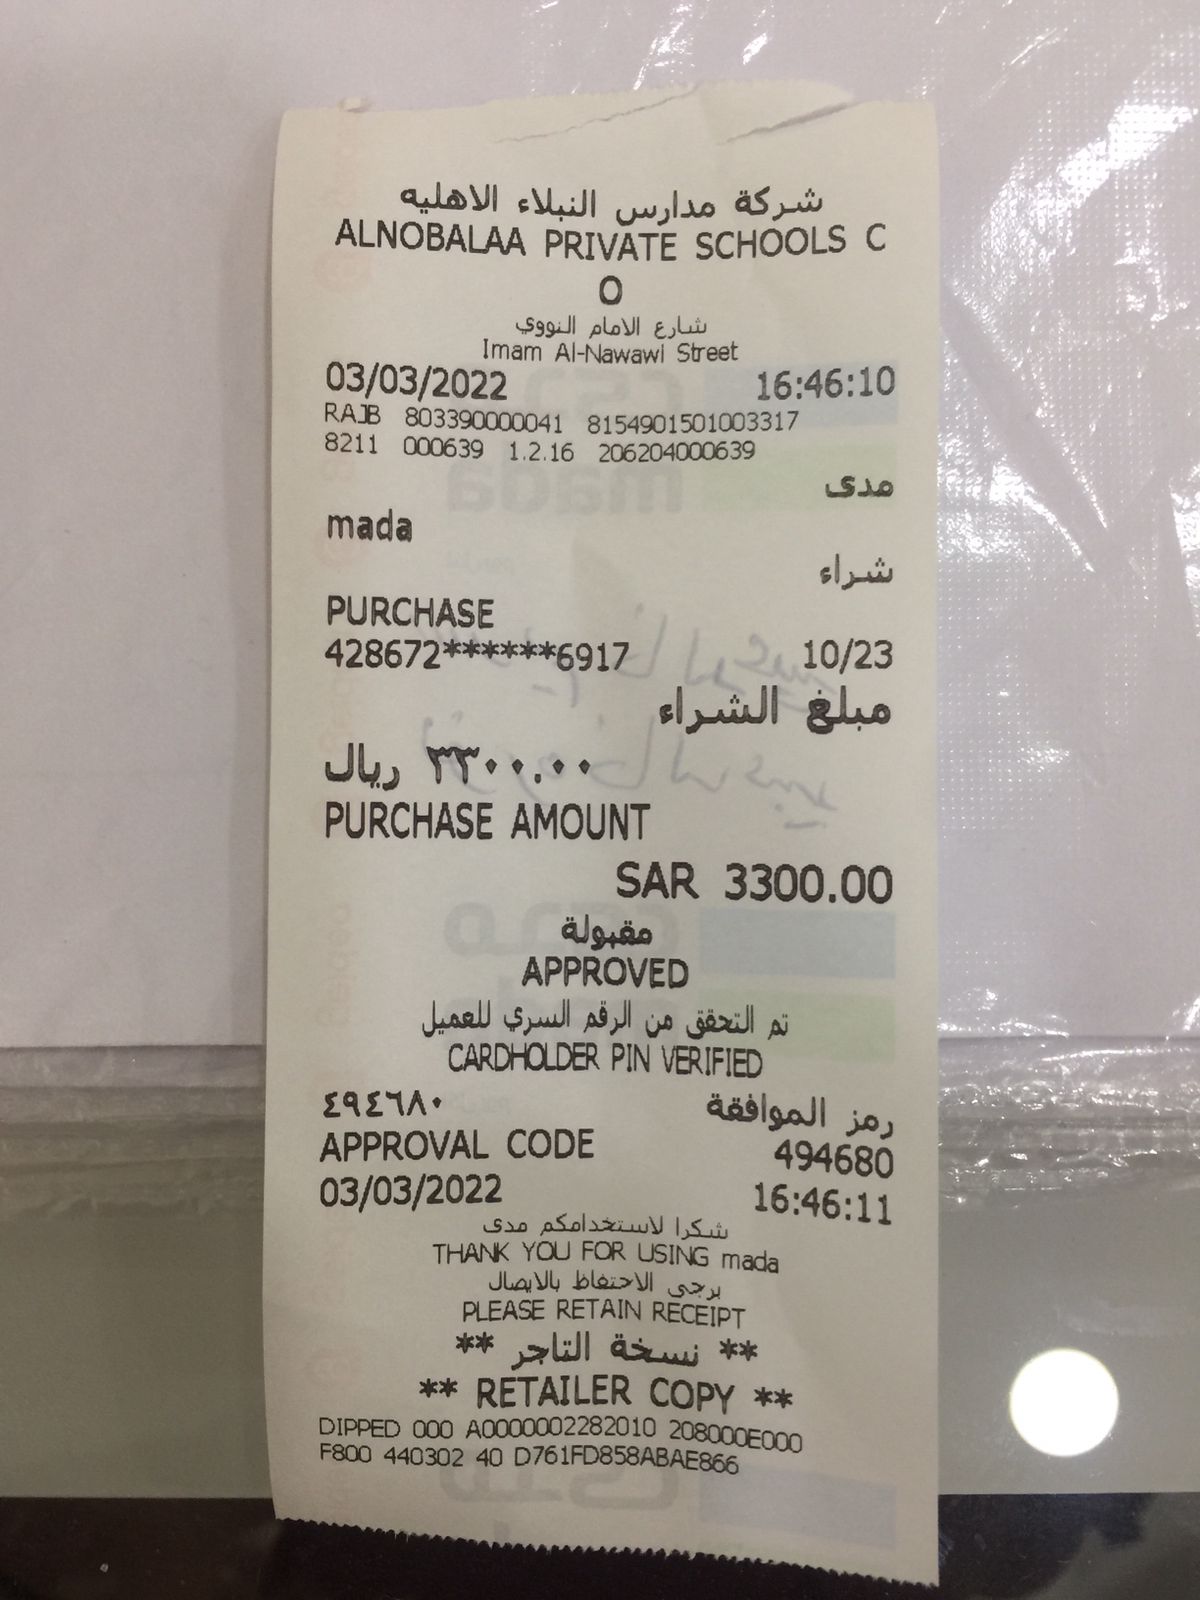 شركة مدارس النبلاء الاهليه
ALNOBALAA PRIVATE SCHOOLS C
O
شارع الامام النووي
Imam Al-Nawawi Street
03/03/2022 16:46:10
RAJB 803390000041 8154901501003317
8211 000639 1.2.16 206204000639
مدى
mada
شراء
PURCHASE
428672******6917 10/23
مبلغ الشراء
٣٣٠٠.٠٠ ريال
PURCHASE AMOUNT
SAR 3300.00
مقبولة
APPROVED
تم التحقق من الرقم السري للعميل
CARDHOLDER PIN VERIFIED
رمز الموافقة ٤٩٤٦٨٠
APPROVAL CODE 494680
03/03/2022 16:46:11
شكرا لاستخدامكم مدى
THANK YOU FOR USING mada
يرجى الاحتفاظ بالايصال
PLEASE RETAIN RECEIPT
** نسخة التاجر **
** RETAILER COPY **
DIPPED 000 A0000002282010 208000E000
F800 440302 40 D761FD858ABAE866